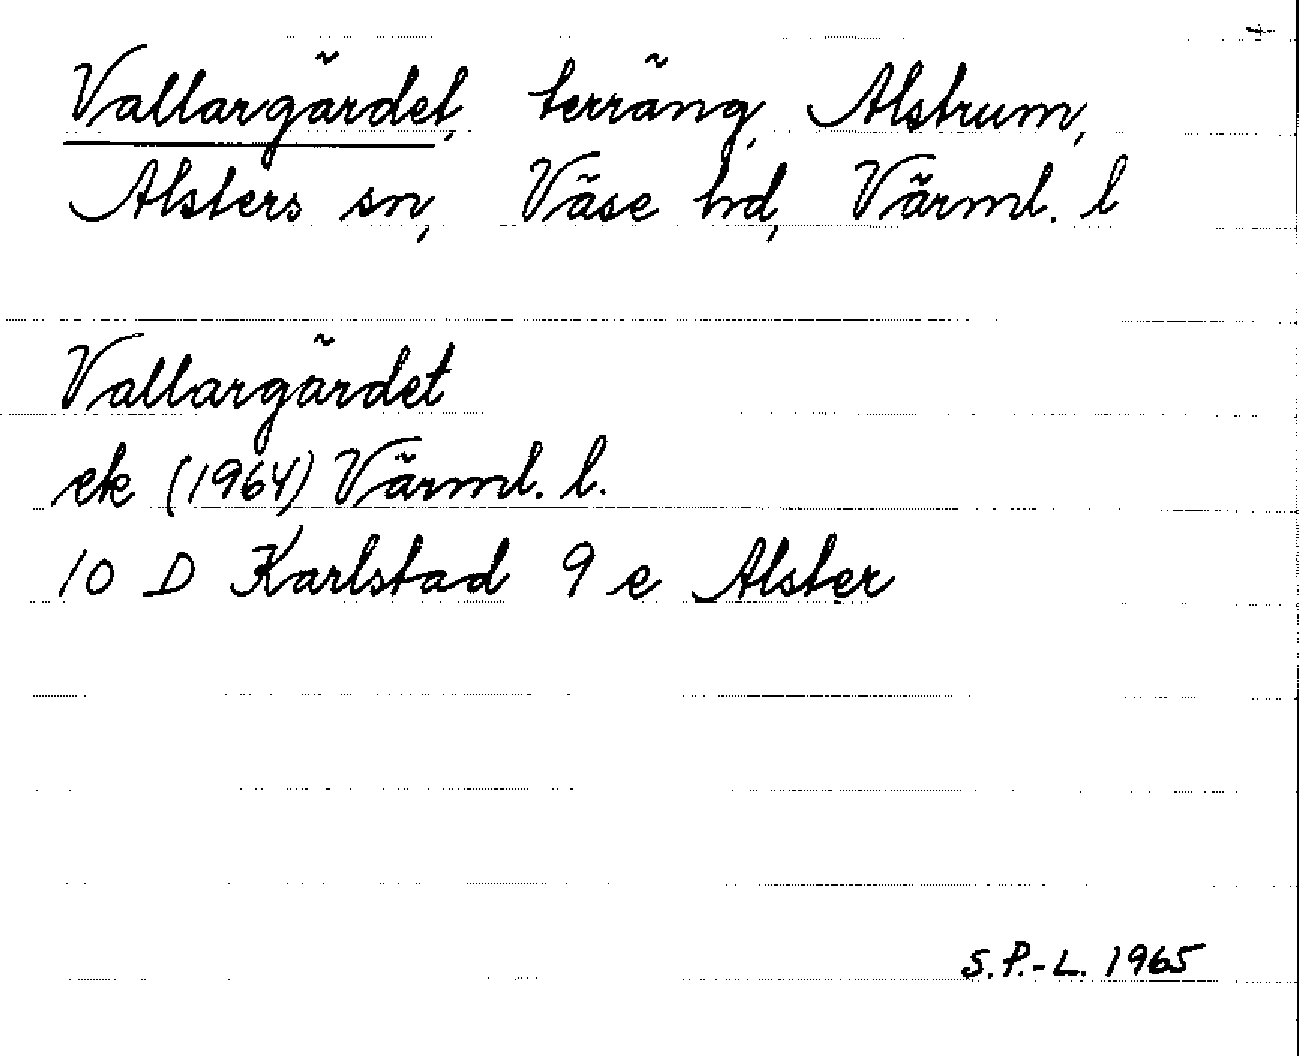 Vallargärdet, terräng, Alstrum,
Alsters sn, Väse hd, Värml. l
Vallargärdet
ek (1964) Värml. l.
10 D Karlstad 9 e Alster
S.P.-L. 1965